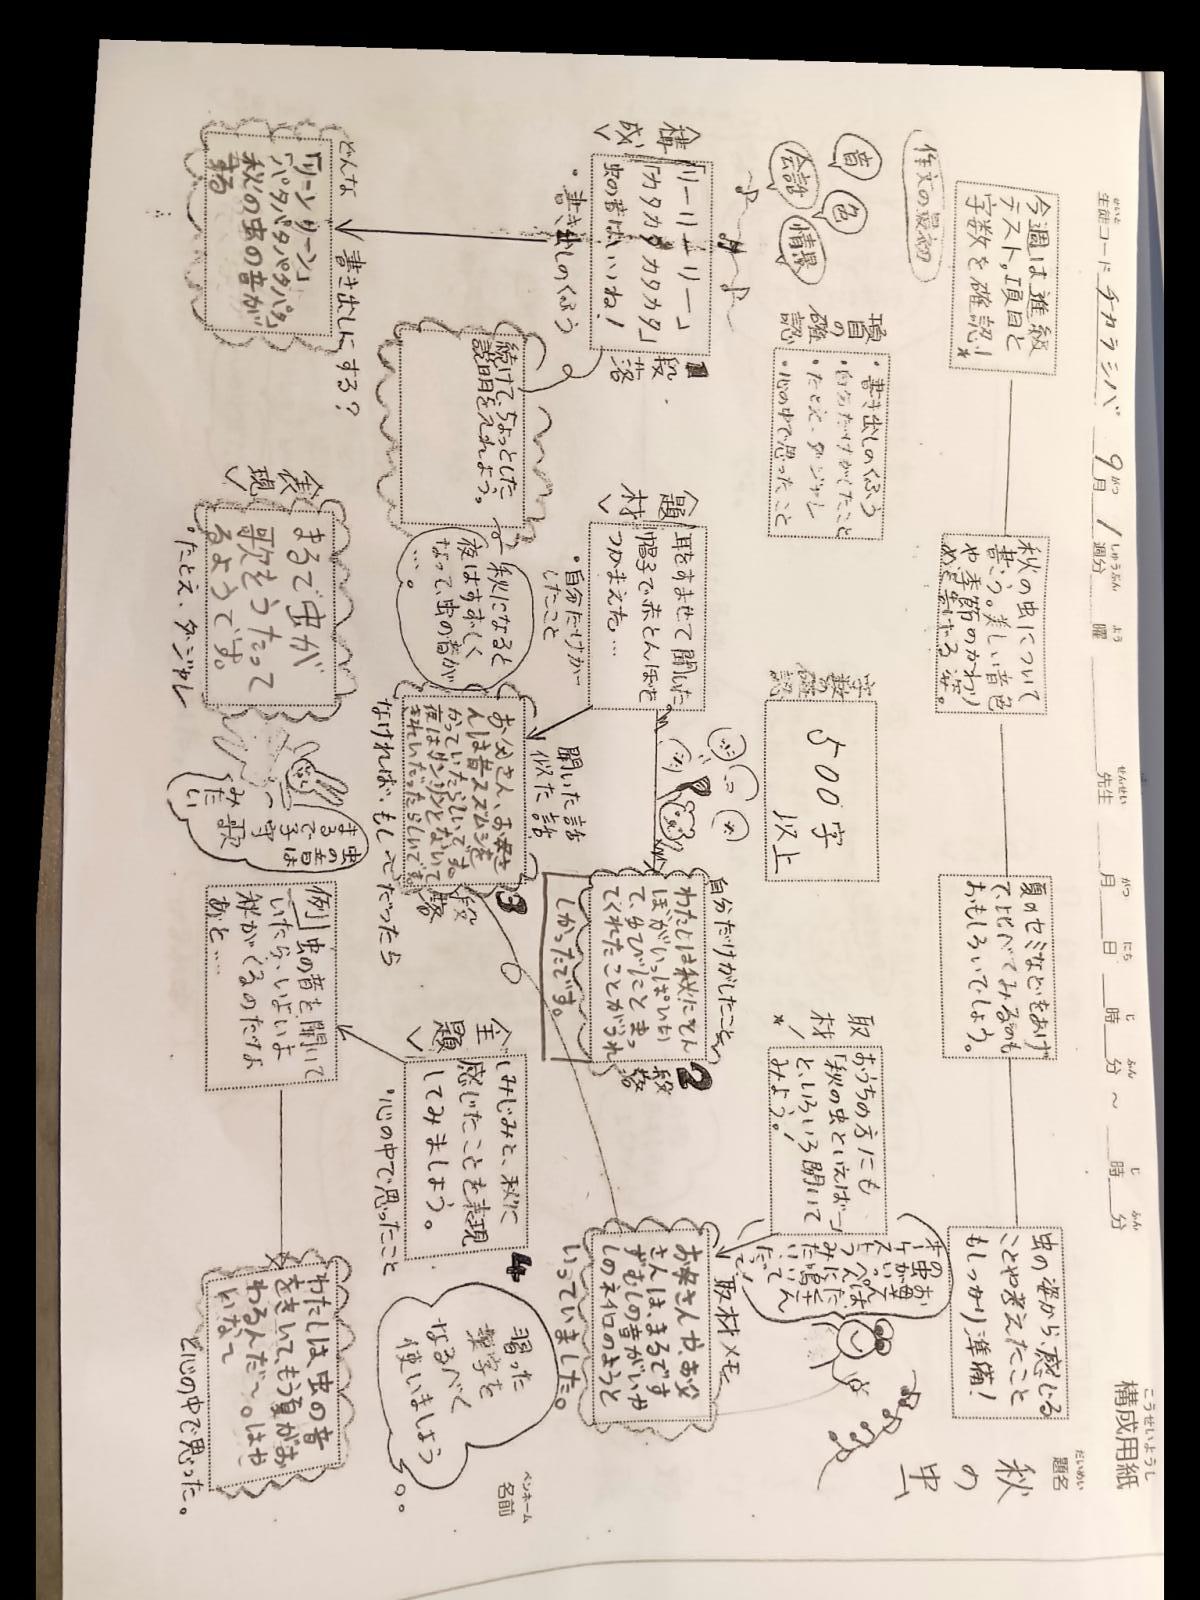 構成用紙
こうせいようし
題名
だいめい
秋の虫
生徒コード チカラシバ 9月 1週分 曜 先生 月 日 時 分 ~ 時 分
今週は進級
テスト,項目と
字数を確認!*
秋の虫について
書こう。美しい音色
や季節のかわり
夏のセミなどをあげ
て、比べてみるのも
おもしろいでしょう。
虫の姿から感じる
ことや考えたこと
もしっかり準備!
作文の最初
音
色
会話
情景
項目の確認
・書き出しのくふう
・自分だけがしたこと
・たとえ、ダジャレ
・心の中で思ったこと
字数の確認
500字
以上
取材!*
おうちの方にも
「秋の虫といえば…」
といろいろ聞いて
みよう。!
取材メモ
お母さんや、お父
さんは、まるです
ずむしの音がいや
しのネイロのようと
いっていました。
構成
「リーリーリー」
「カタカタカタカタ」
虫の音はいいね!
・書き出しのくふう
1段落
題材
耳をすませて聞いた
帽子で赤とんぼを
つかまえた…
・自分だけがー
したこと
自分だけがしたこと
わたしは秋にとん
ぼがいっぱいい
て、ゆびにとまっ
てくれたことがうれ
しかったです。
2段落
続けて、ちょっとした
説明を入れよう。
秋になると
夜はすずしく
なって、虫の音が
…。
聞いた話
似た話
お父さん、お母さ
んは昔スズムシを
かっていたらしいです。
夜はリンリンとないて
きれいだったらしいです。
なければ、もし〜だったら
3段落
主題
しみじみと、秋に
感じたことを表現
してみましょう。
・心の中で思ったこと
4
習った
漢字を
なるべく
使いましょう
ペンネーム
名前
どんな書き出しにする?
「リーンリーン」
「パタパタパタパタ」
秋の虫の音が
する
表現
まるで虫が
歌をうたって
るようです。
・たとえ、ダジャレ
虫の音は
まるで子守
歌
みたい
例 虫の音を聞いて
いたら、いよいよ
秋がくるのだなぁ
あと….
わたしは虫の音
をきいて、もう夏がお
わるんだ〜。はや
いなって
と心の中で思った。